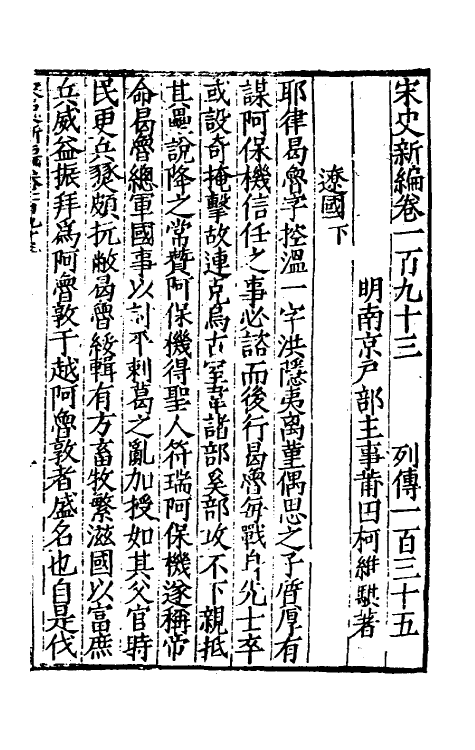 宋史新編卷一百九十三　列傳一百三十五
明南京戶部主事莆田柯維騏著
遼國下
耶律曷魯字控溫一字洪隱夷离堇偶思之子質厚有
謀阿保機信任之事必諮而後行曷魯每戰身先士卒
或設奇掩擊故連克烏古室韋諸部奚部攻不下親抵
其壘說降之常贊阿保機得聖人符瑞阿保機遂稱帝
命曷魯總軍國事以討平剌葛之亂加授如其父官時
民更兵燹頗抏敝曷魯綏輯有方畜牧繁滋國以富庶
兵威益振拜為阿魯敦于越阿魯敦者盛名也自是伐